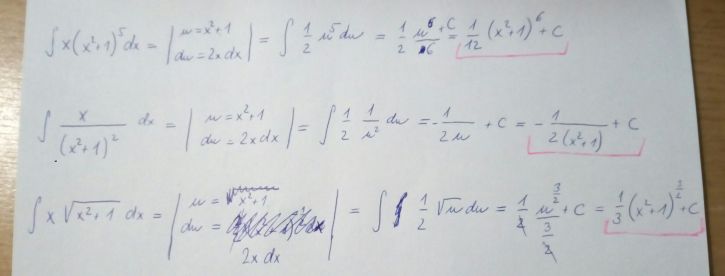 ∫ x(x²+1)⁵ dx = | u = x²+1 ; du = 2x dx | = ∫ 1/2 u⁵ du = 1/2 u⁶/6 + C = 1/12 (x²+1)⁶ + C
∫ x/(x²+1)² dx = | u = x²+1 ; du = 2x dx | = ∫ 1/2 1/u² du = - 1/(2u) + C = - 1/(2(x²+1)) + C
∫ x √(x²+1) dx = | u = x²+1 ; du = 2x dx | = ∫ 1/2 √u du = 1/2 u^(3/2)/(3/2) + C = 1/3 (x²+1)^(3/2) + C